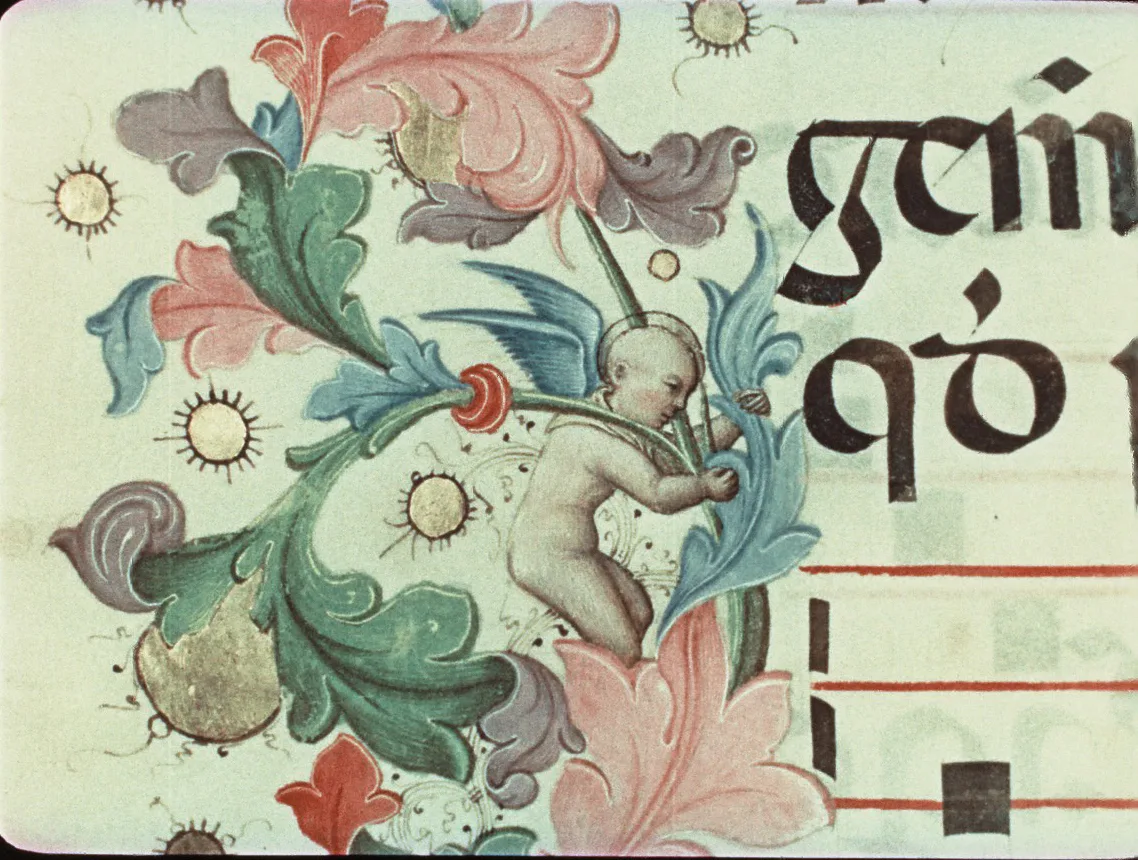 gem̄
qd̄